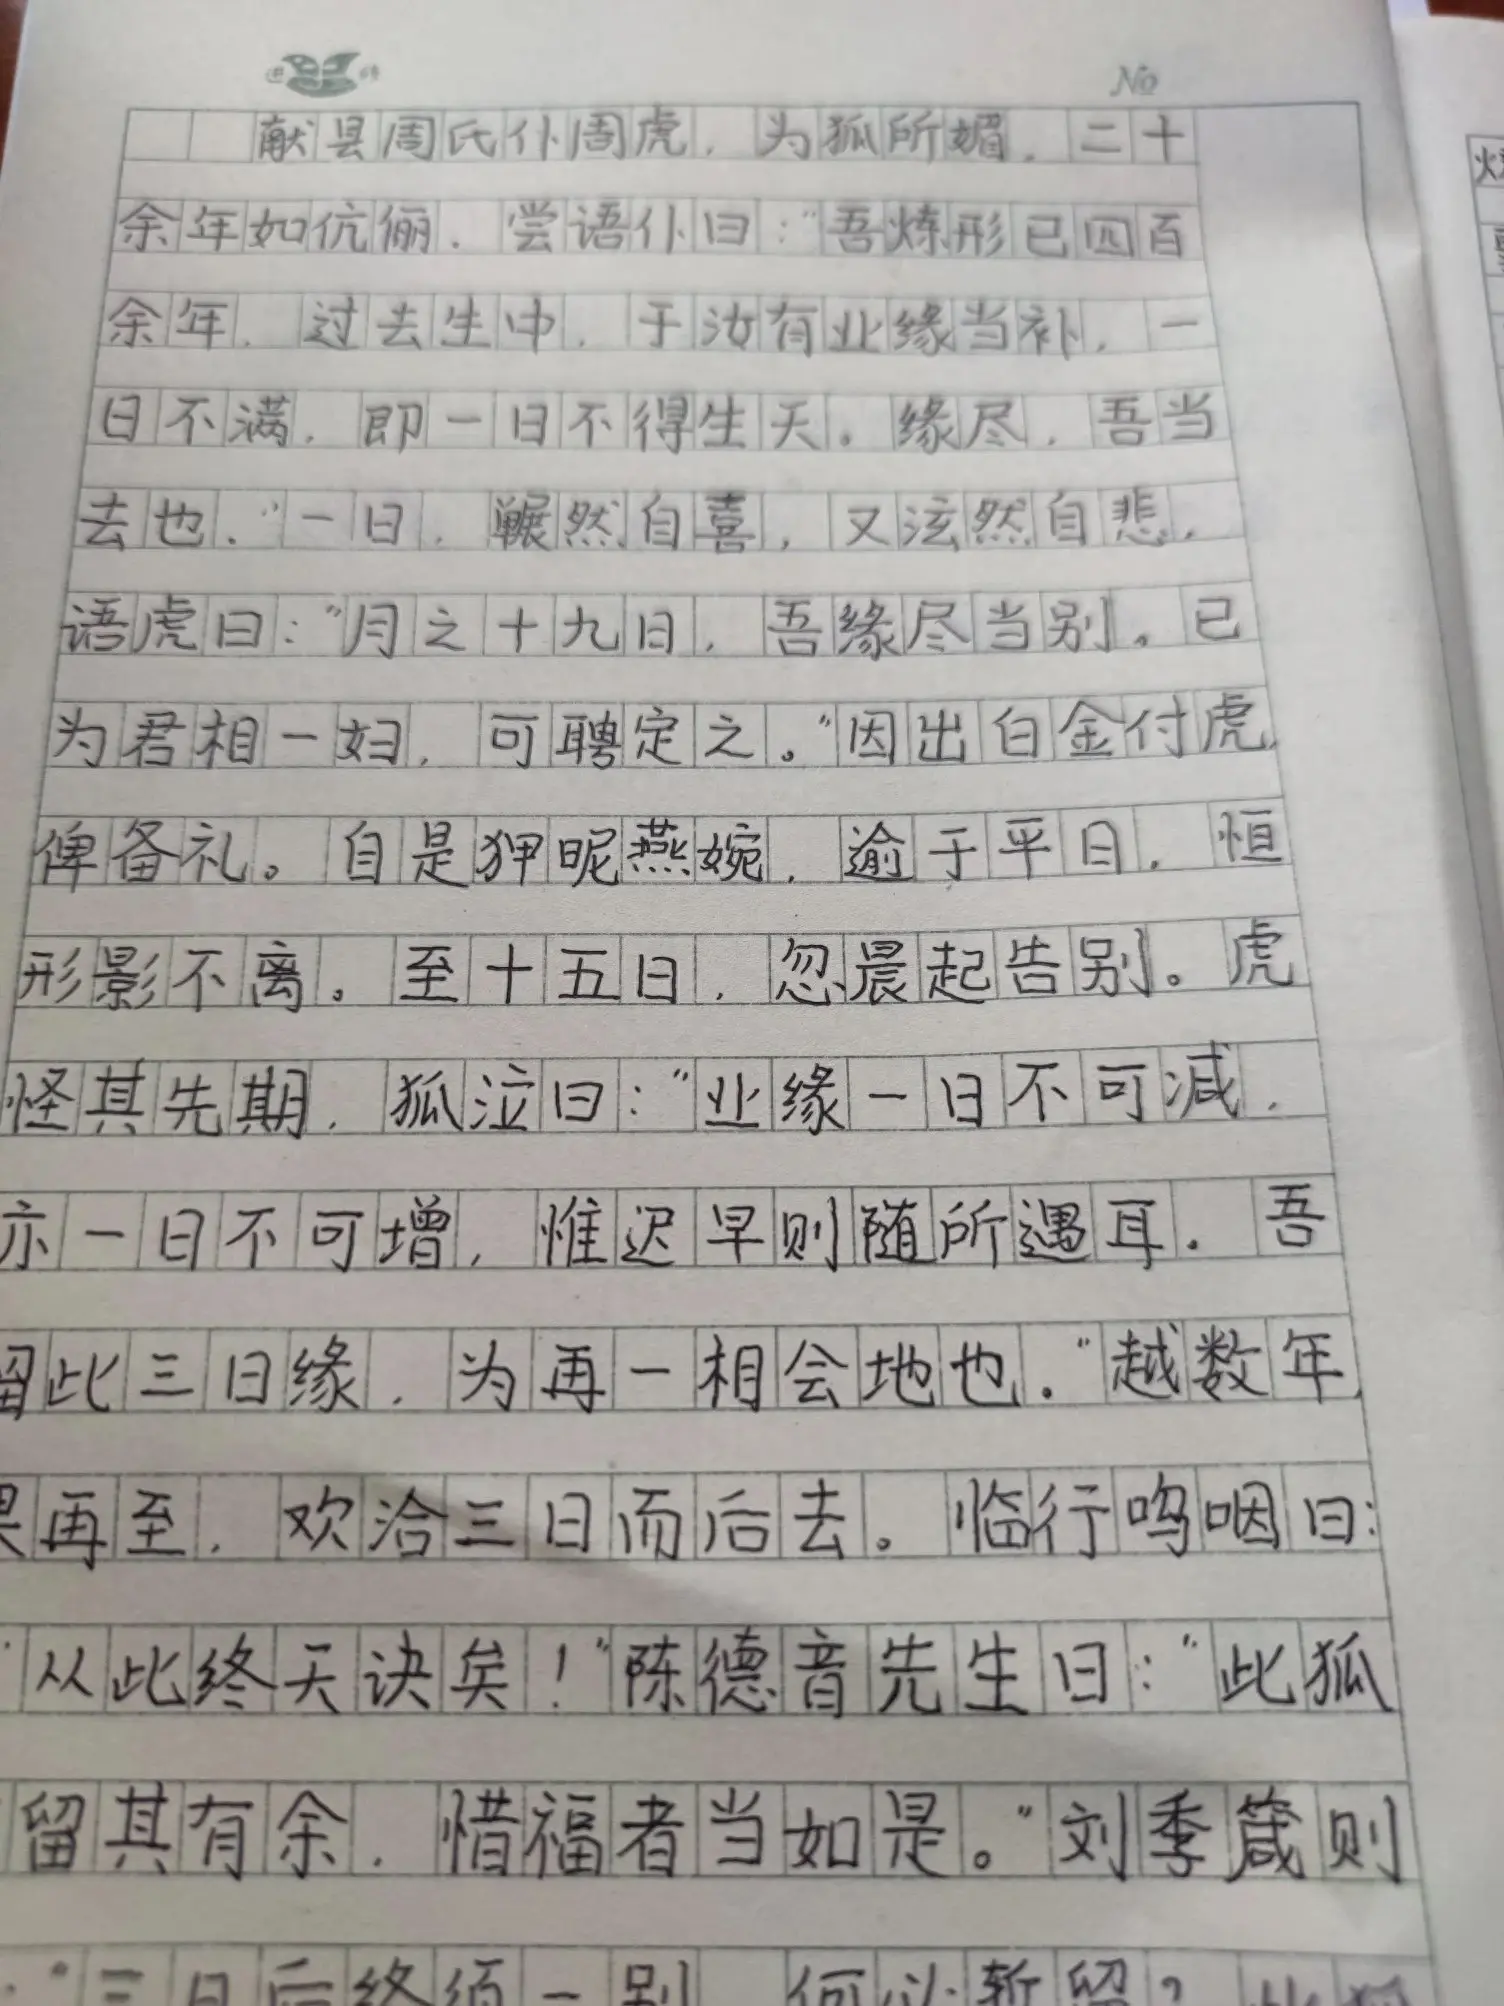 No
献县周氏仆周虎，为狐所媚，二十
余年如伉俪．尝语仆曰："吾炼形已四百
余年．过去生中，于汝有业缘当补，一
日不满，即一日不得生天。缘尽，吾当
去也．"一日，冁然自喜，又泫然自悲，
语虎曰："月之十九日，吾缘尽当别。已
为君相一妇，可聘定之。"因出白金付虎，
俾备礼。自是狎昵燕婉，逾于平日，恒
形影不离。至十五日，忽晨起告别。虎
怪其先期．狐泣曰："业缘一日不可减，
亦一日不可增，惟迟早则随所遇耳．吾
留此三日缘，为再一相会地也．"越数年，
果再至，欢洽三日而后去。临行呜咽曰：
"从此终天诀矣！"陈德音先生曰："此狐
留其有余，惜福者当如是。"刘季箴则
："三日后终须一别，何必暂留？此狐